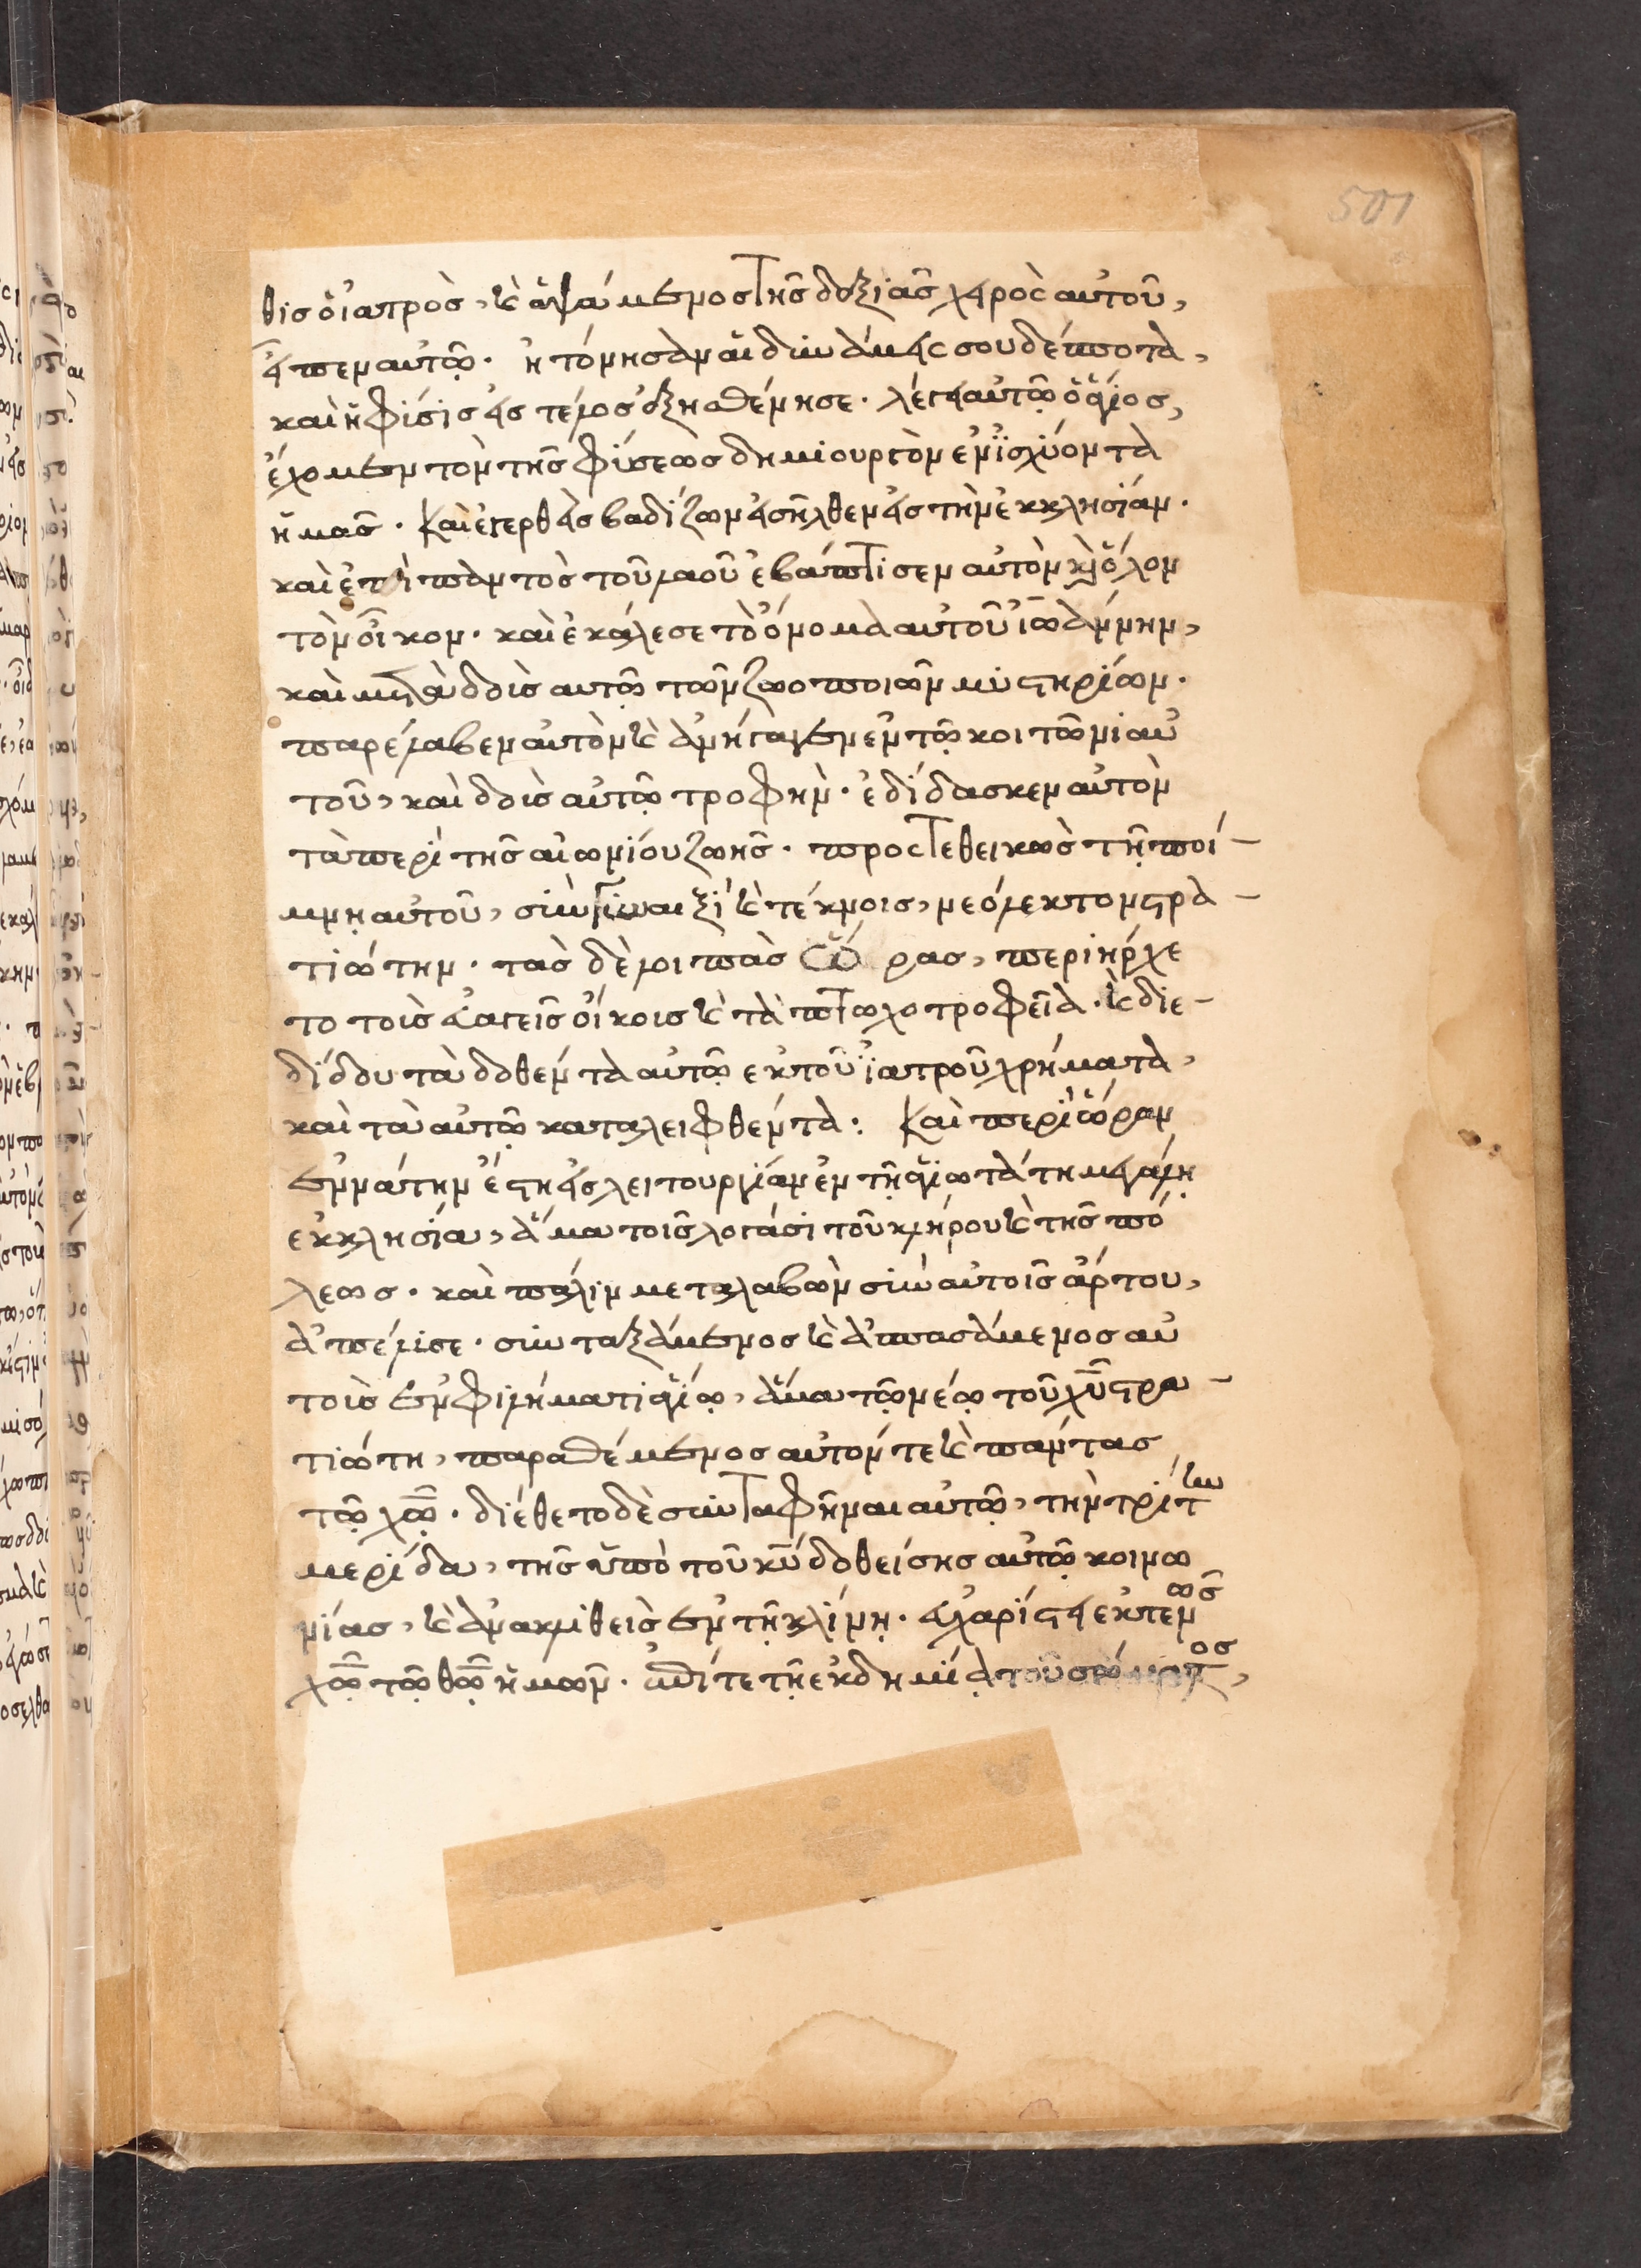 501
θὶς ὁ ἰατρὸς, καὶ ἁψάμενος τῆς δεξιᾶς χειρὸς αὐτοῦ,
εἶπεν αὐτῷ. ἠτόνησαν αἱ δυνάμεις σου δέσποτα,
καὶ ἡ φύσις εἰς τέλος ἐξησθένησε. λέγει αὐτῷ ὁ ἅγιος,
ἔχομεν τὸν τῆς φύσεως δημιουργὸν ἐνϊσχύοντα
ἡμᾶς. Καὶ ἐγερθεὶς βαδίζων εἰσῆλθεν εἰς τὴν ἐκκλησίαν.
καὶ ἐπὶ παντὸς τοῦ λαοῦ ἐβάπτισεν αὐτὸν κὴ ὅλον
τὸν οἶκον. καὶ ἐκάλεσε τὸ ὄνομα αὐτοῦ ἰωάννην,
καὶ μεταδοὺς αὐτῷ τῶν ζωοποιῶν μυστηρίων.
παρέλαβεν αὐτὸν καὶ ἀνήγαγεν ἐν τῷ κοιτῶνι αὐ
τοῦ, καὶ δοὺς αὐτῷ τροφὴν. ἐδίδασκεν αὐτὸν
τὰ περὶ τῆς αἰωνίου ζωῆς. προστεθεικὼς τῇ ποί-
μνῃ αὐτοῦ, σὺν γυναιξὶ καὶ τέκνοις, νεόλεκτον στρα-
τιώτην. τὰς δὲ λοιπὰς ὥρας, περιήρχε
το τοὺς εὐαγεῖς οἴκους καὶ τὰ πτωχοτροφεῖα. καὶ διε-
δίδου τὰ δοθέντα αὐτῷ ἐκ τοῦ ἰατροῦ χρήματα,
καὶ τὰ αὐτῷ καταλειφθέντα: Καὶ περὶ ὥραν
ἐννάτην ἔστη εἰς λειτουργίαν ἐν τῇ ἁγιωτάτῃ μεγάλῃ
ἐκκλησία, ἅμα τοῖς λογάσι τοῦ κλήρου καὶ τῆς πό
λεως. καὶ πάλιν μεταλαβὼν σὺν αὐτοῖς ἄρτου,
ἀπέλυσε. συνταξάμενος καὶ ἀσπασάμενος αὐ
τοὺς ἐν φιλήματι ἁγίῳ, ἅμα τῷ νέῳ τοῦ χῦ στρα-
τιώτη, παραθέμενος αὐτόν τε καὶ πάντας
τῷ χῶ. διέθετο δὲ συνταφῆναι αὐτῷ, τὴν τρίτην
μερίδα, τῆς ὑπὸ τοῦ κῦ δοθείσης αὐτῷ κοινω
νίας, καὶ ἀνακλιθεὶς ἐν τῇ κλίνῃ. εὐχαρίστει ἐκτενῶς
χῶ τῷ θῶ ἡμῶν. ἐπί τε τῇ ἐκδημίᾳ τοῦ σώματος,